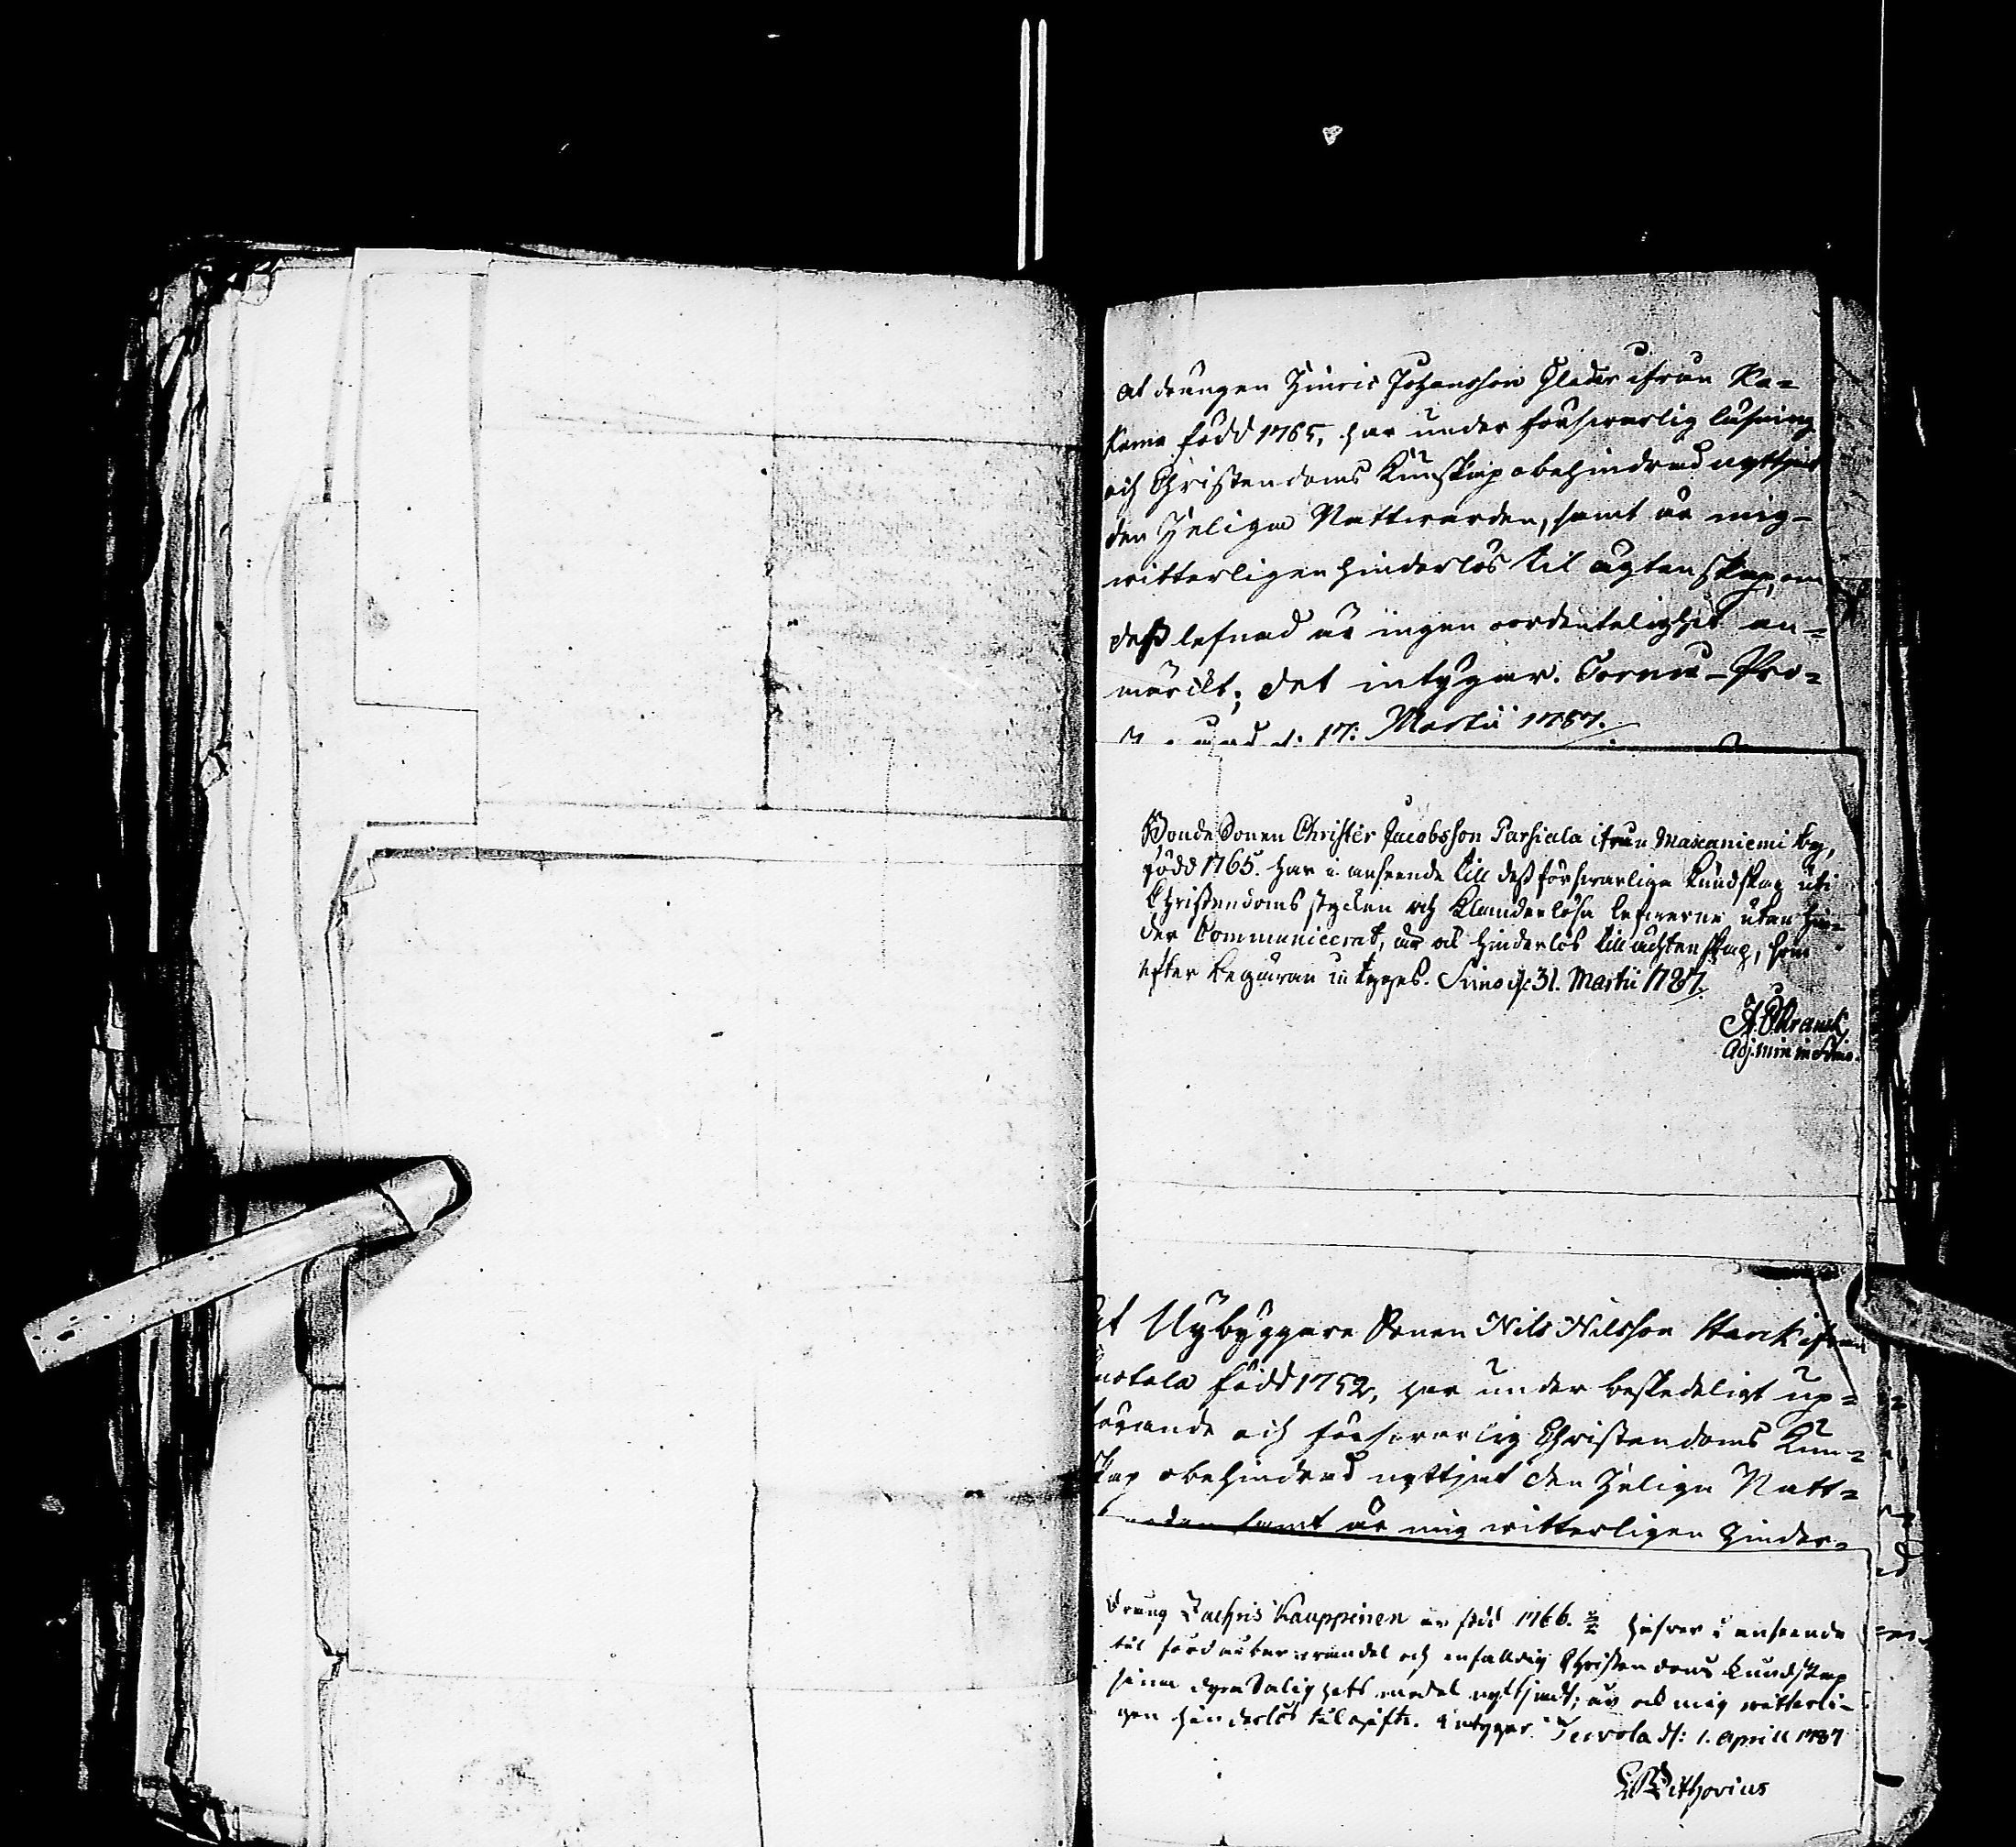 at drängen Hinric Johansson Glader ifrån Ka-
kama född 1765, har under försvarlig läsning
och Christendoms Kunskap obehindrad nyttjat
den Heliga Nattwarden, samt är mig-
witterligen hinderlös til ägtenskap, om
dess lefnad är ingen oordentelighet an-
märckt; det intygar. Torneå-Pro-
d. 17: Martii 1787.
Bonde Sonen Christer Jacobsson Parsiala ifrån Maxaniemi by,
född 1765. har i anseende till dess försvarliga Kundskap uti
Christendoms stycken och Klanderlösa lefverne utan hin-
der Communicerat, är ock hinderlös till ächtenskap, som
efter begäran intyges. Simo d. 31. Martii 1787.
Adj. min in Simo.
at Nybyggare Sonen Nils Nilsson Stark ifrån
född 1752, har under beskedeligt up-
förande och försvarlig Christendoms Kun-
skap obehindrad nyttjat den Heliga Natt-
warden samt är mig witterligen hinder-
Dräng Zachris Kauppinen är född 1766. hafver i anseende
til och enfaldig Christendoms Kundskap
sinna dyra Salighets medel nyttjadt; är ock mig witterli-
gen hinderlös til gifte. Intygar Tervola d: 1. April 1787